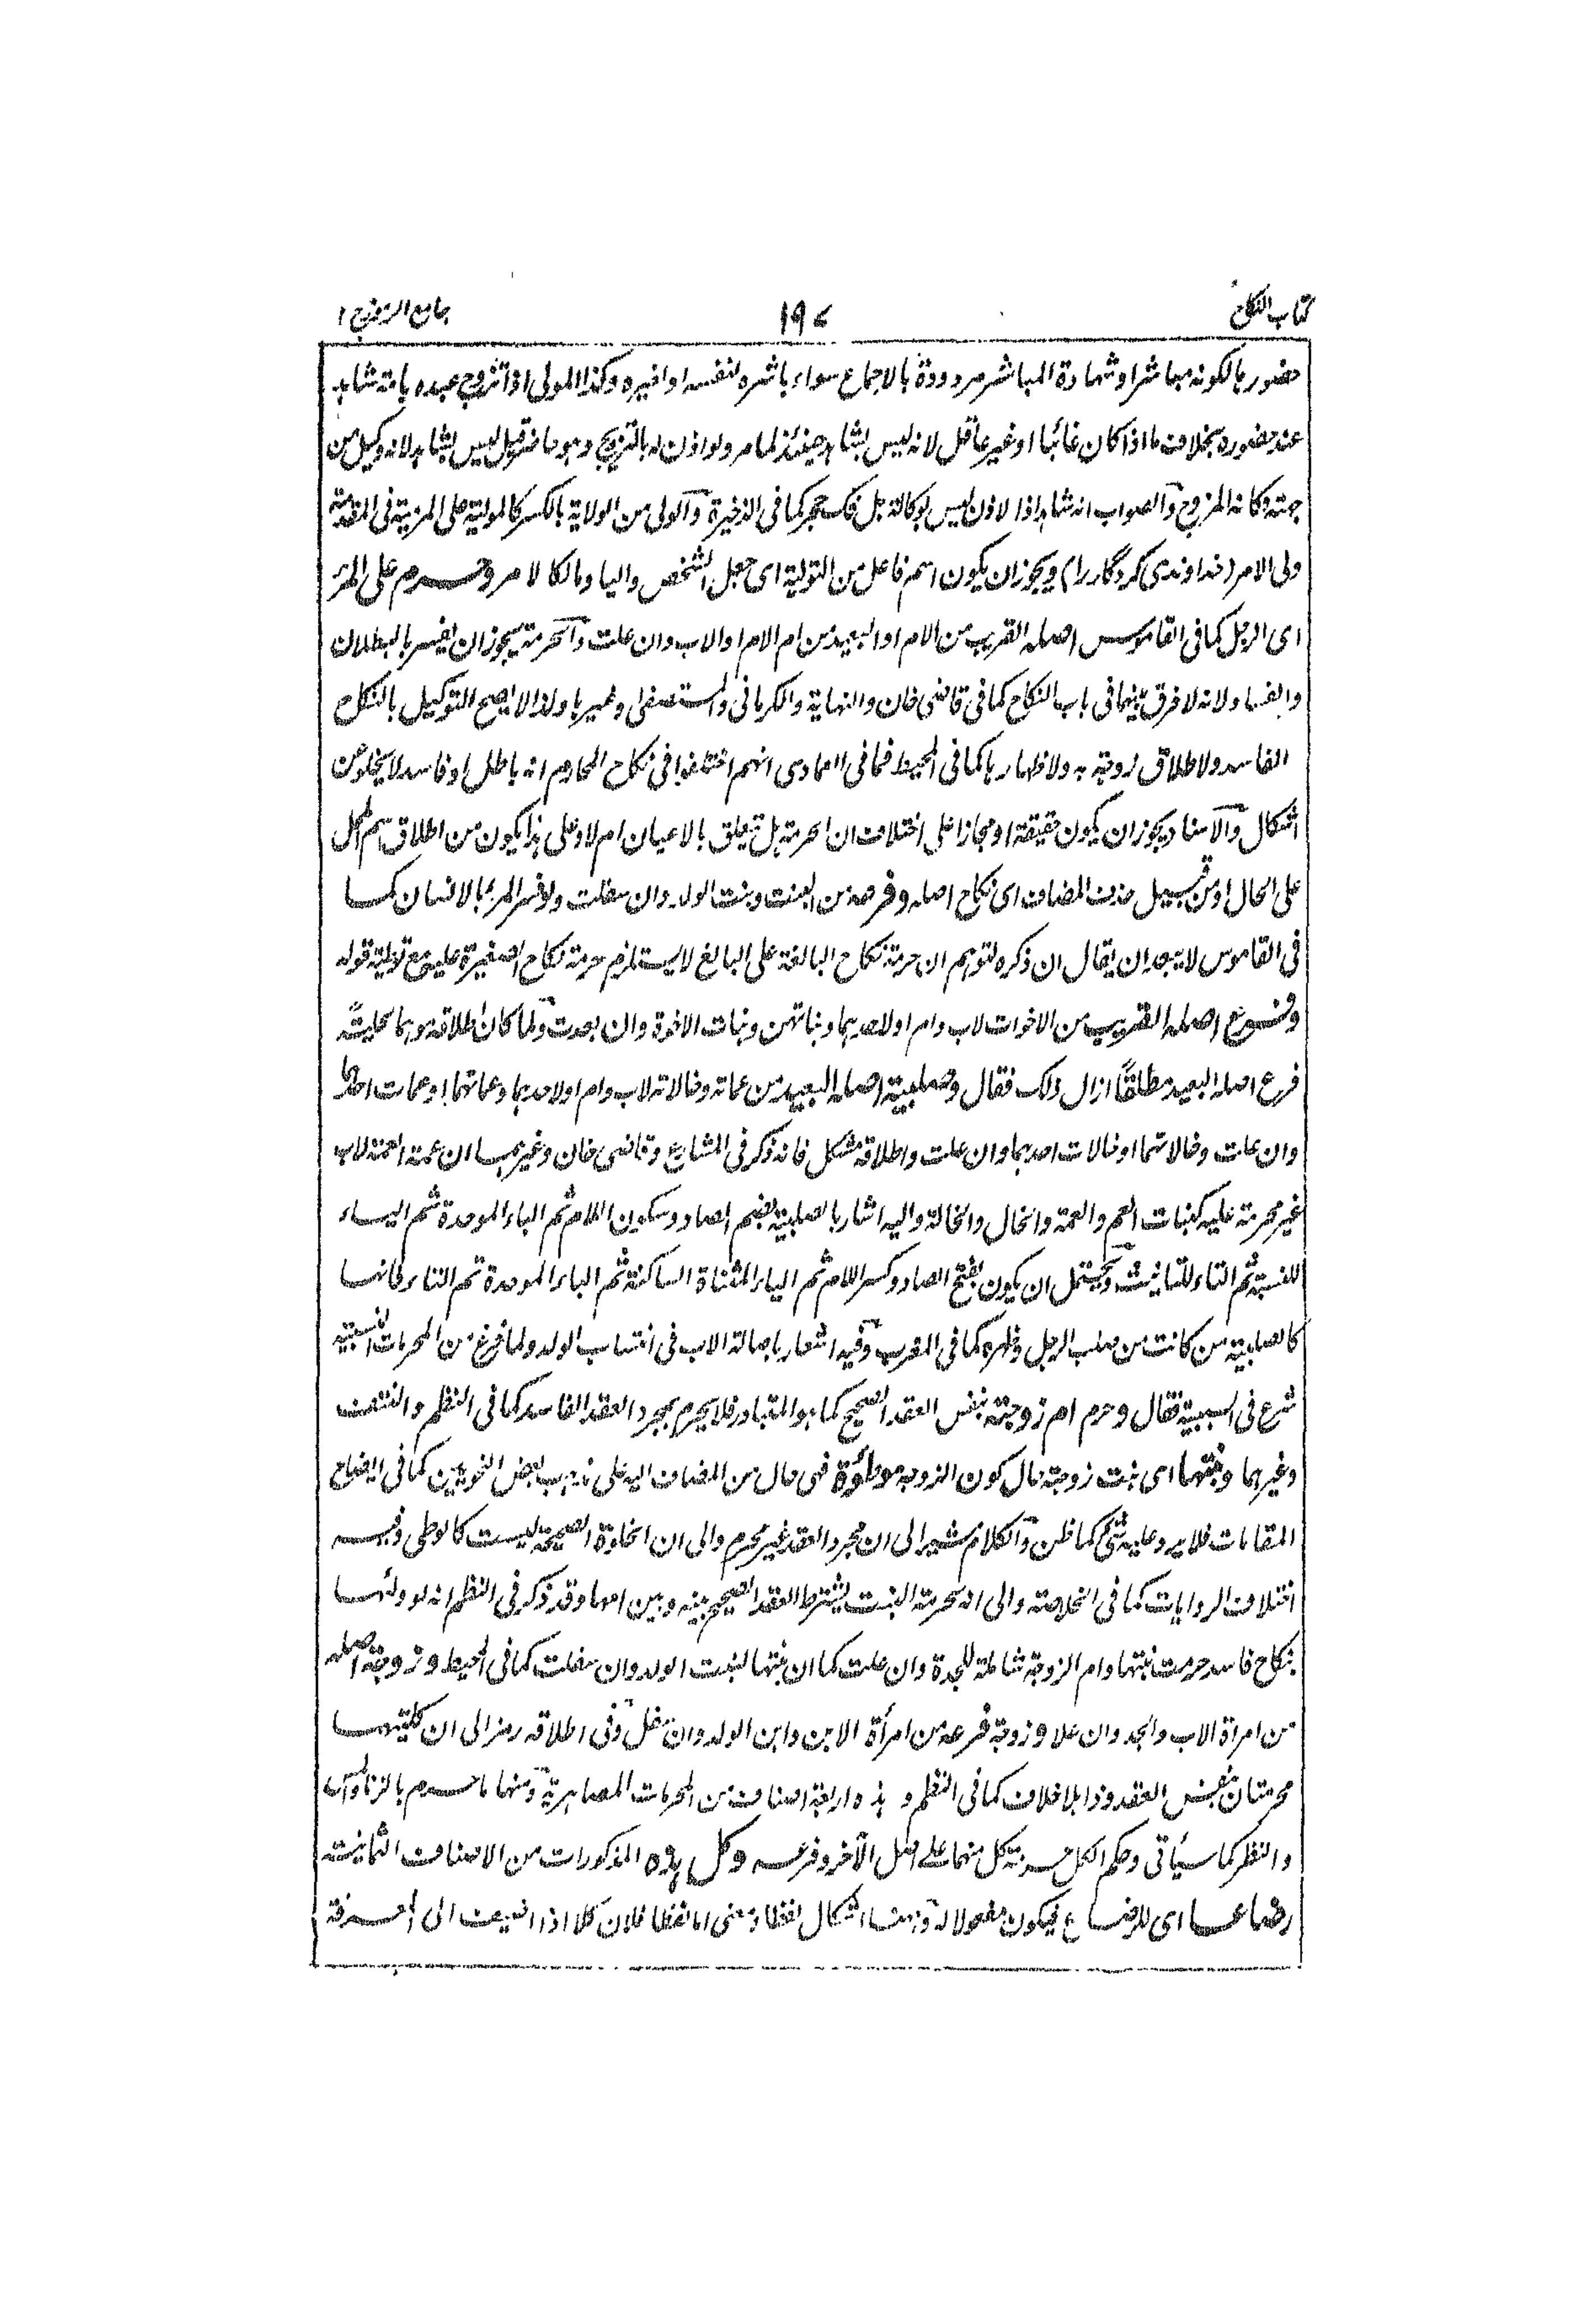 كتاب النكاح
١٩٧
جامع الرموز ج ١
حضورها لكونه مباشرا وشهادة المباشر مردودة بالاجماع سواء باشره لنفسه او لغيره وكذا المولى اذا تزوج عبده بامة شاهد
عند حضوره بخلاف ما اذا كان غائبا او غير عاقل لانه ليس بشاهد حينئذ لما مر ولو اذن له بالتزويج وهو حاضر قيل ليس بشاهد لانه وكيل من
جهته فكانه المزوج والصواب انه شاهد اذ الاذن ليس بوكالة بل فك حجر كما فى الذخيرة والولى من الولاية بالكسر كالمولية على المزيّة فى المقدمة
ولى الامر (خداوندى كردگار را) ويجوز ان يكون اسم فاعل من التولية اى جعل الشخص واليا ومالكا لامر وحرم على المرء
اى الرجل كما فى القاموس اصله القريب من الام او البعيد من ام الام او الاب وان علت والحرمة يجوز ان يفسر بالبطلان
والفساد لانه لا فرق بينهما فى باب النكاح كما فى قاضى خان والنهاية والكرمانى والمستصفى وغيرها ولذا لا يصح التوكيل بالنكاح
الفاسد ولا طلاق زوجته به ولا ظهارها كما فى المحيط فما فى العمادى انهم اختلفوا فى نكاح المحارم انه باطل او فاسد لا يخلو عن
اشكال والاسناد يجوز ان يكون حقيقة او مجازا على اختلاف ان الحرمة هل تتعلق بالاعيان ام لا وعلى هذا يكون من اطلاق اسم المحل
على الحال او من قبيل حذف المضاف اى نكاح اصله وفرعه من البنت وبنت الولد وان سفلت ولو فسر المرء بالانسان كما
فى القاموس لا يبعد ان يقال ان ذكره لتوهم ان حرمة نكاح البالغة على البالغ لا يستلزم حرمة نكاح الصغيرة عليه مع توطئة قوله
وفروع اصله القريب من الاخوات لاب وام او لاحدهما وبناتهن وبنات الاخوة وان بعدت ولما كان اطلاقه موهما لحلية
فرع اصله البعيد مطلقًا ازال ذلك فقال وصلبية اصله البعيد من عماته وخالاته لاب وام او لاحدهما وعماتهما او عمات احدهما
وان علت وخالاتهما او خالات احدهما وان علت واطلاقه مشكل فانه ذكر فى المشارع وقاضى خان وغيرهما ان عمة العمة لاب
غير محرمة عليه كبنات العم والعمة والخال والخالة واليه اشار بالصلبية بضم الصاد وسكون اللام ثم الباء الموحدة ثم الياء
للنسبة ثم التاء للتانيث ويحتمل ان يكون بفتح الصاد وكسر اللام ثم الياء المثناة الساكنة ثم الباء الموحدة ثم التاء فانها
كالصلبية من كانت من صلب الرجل وظهره كما فى المغرب وفيه اشعار باصالة الاب فى انتساب الولد ولما فرغ من المحرمات النسبية
شرع فى السببية فقال وحرم ام زوجته بنفس العقد الصحيح كما هو المتبادر فلا يحرم بمجرد العقد الفاسد كما فى النظم والنتف
وغيرهما وبنتها اى بنت زوجته حال كون الزوجة موطوءة فهى حال من المضاف اليه على مذهب بعض النحويين كما فى ايضاح
المقامات فلا يرد عليه شئ كما ظن والكلام مشير الى ان مجرد العقد غير محرم والى ان الخلوة الصحيحة ليست كالوطى وفيه
اختلاف الروايات كما فى الخلاصة والى انه لحرمة البنت يشترط العقد الصحيح بينه وبين امها وقد ذكر فى النظم انه لو وطئها
بنكاح فاسد حرمت بنتها وام الزوجة شاملة للجدة وان علت كما ان بنتها لبنت الولد وان سفلت كما فى المحيط وزوجة اصله
من امرأة الاب والجد وان علا وزوجة فرعه من امرأة الابن وابن الولد وان سفل وفى اطلاقه رمز الى ان كلتيهما
محرمتان بنفس العقد وذا بلا خلاف كما فى النظم وهذه اربعة اصناف من المحرمات المصاهرية ومنها ما حرم بالزنا والمس
والنظر كما سيأتى وحكم الكل حرمة كل منهما على اصل الآخر وفرعه وكل هذه المذكورات من الاصناف الثمانية
رضاعا اى للرضاع فيكون مفعولا له وههنا اشكال لفظا ومعنى اما لفظا فلان كلا اذا اضيفت الى المعرفة